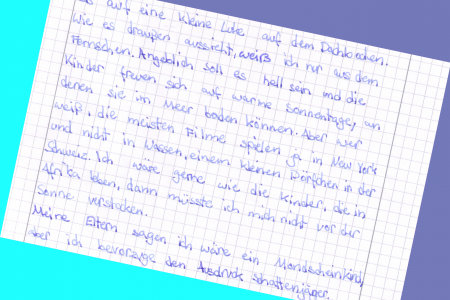 es auf eine kleine Luke auf dem Dachboden.
Wie es draußen aussieht, weiß ich nur aus dem
Fernsehen. Angeblich soll es hell sein und die
Kinder freuen sich auf warme Sonnentage, an
denen sie im Meer baden können. Aber wer
weiß, die meisten Filme spielen ja in New York
und nicht in Wassen, einem kleinen Dörfchen in der
Schweiz. Ich wäre gerne wie die Kinder, die in
Afrika leben, dann müsste ich mich nicht vor der
Sonne verstecken.
Meine Eltern sagen ich wäre ein Mondscheinkind,
aber ich bevorzuge den Ausdruck Schattenjäger.